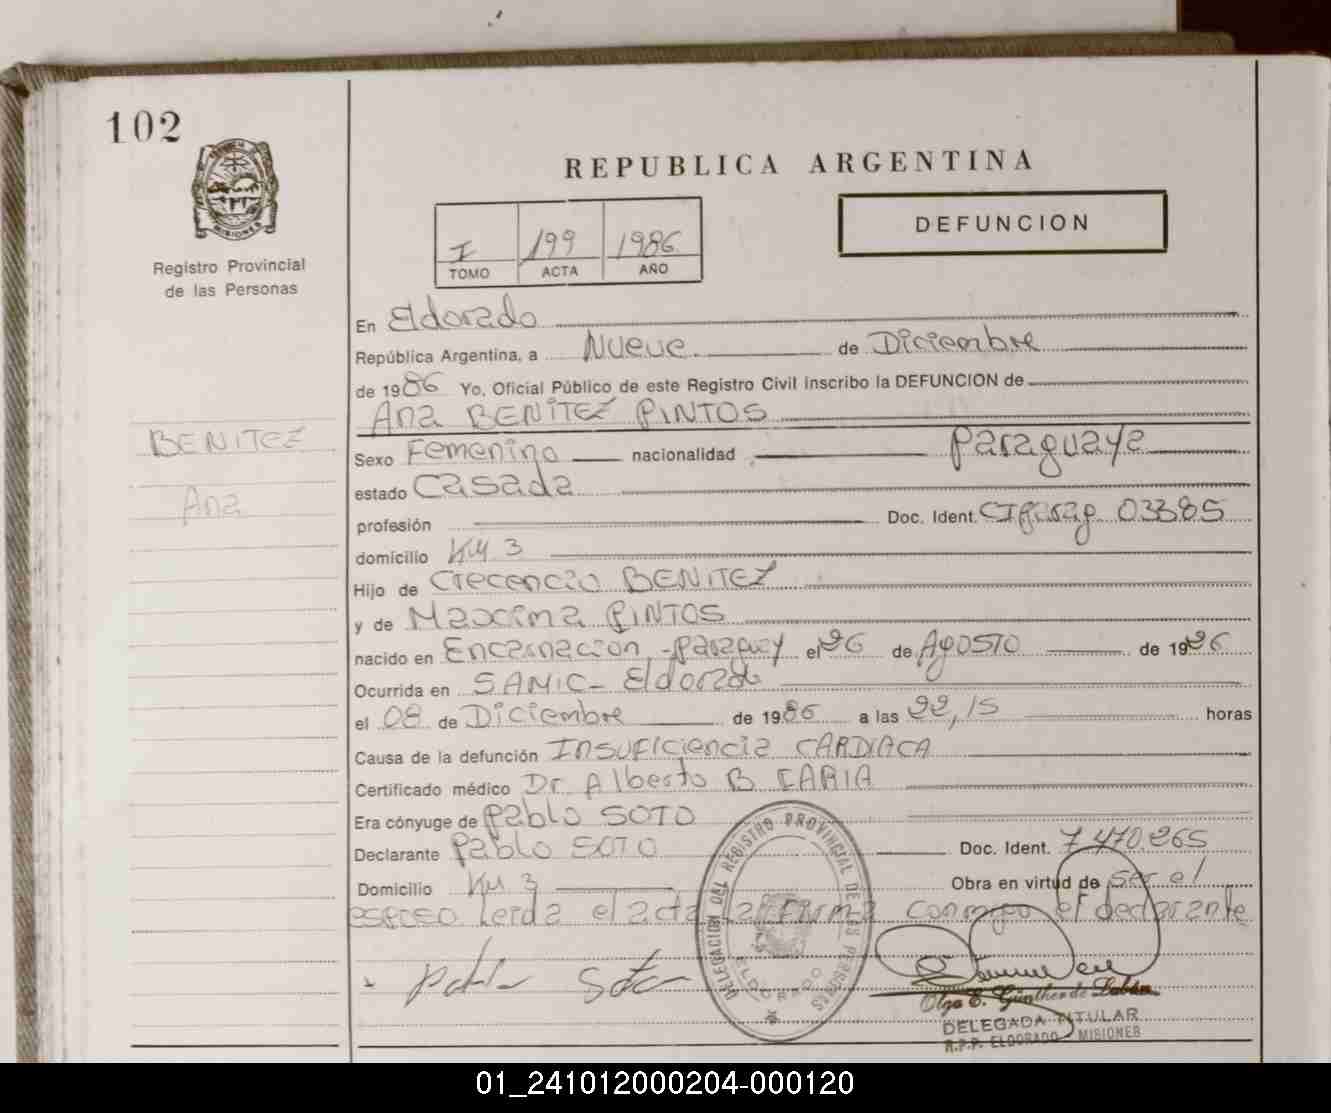 102
REPUBLICA ARGENTINA
MISIONES
Registro Provincial
de las Personas
I 199 1986
TOMO ACTA AÑO
DEFUNCION
En Eldorado
República Argentina, a Nueve de Diciembre
de 1986 Yo, Oficial Público de este Registro Civil inscribo la DEFUNCION de
Ana BENITEZ PINTOS
BENITEZ
Ana
Sexo Femenino nacionalidad Paraguaya
estado Casada
profesión Doc. Ident. CI parag 03385
domicilio KM 3
Hijo de Crecencio BENITEZ
y de Maxcima PINTOS
nacido en Encarnacion - Paraguay el 26 de Agosto de 1926
Ocurrida en SAMIC - Eldorado
el 08 de Diciembre de 1986 a las 22,15 horas
Causa de la defunción Insuficiencia CARDIACA
Certificado médico Dr. Alberto B
Era cónyuge de Pablo SOTO
Declarante Pablo SOTO Doc. Ident. 7.470.265
Domicilio KM 3 Obra en virtud de ser el
esposo Leida el acta la Firma conmigo el declarante
Pablo Soto
DELEGACION DEL REGISTRO PROVINCIAL DE LAS PERSONAS
ELDORADO
Olga E. Günther de Labán
DELEGADA TITULAR
R.P.P. ELDORADO MISIONES
01_241012000204-000120